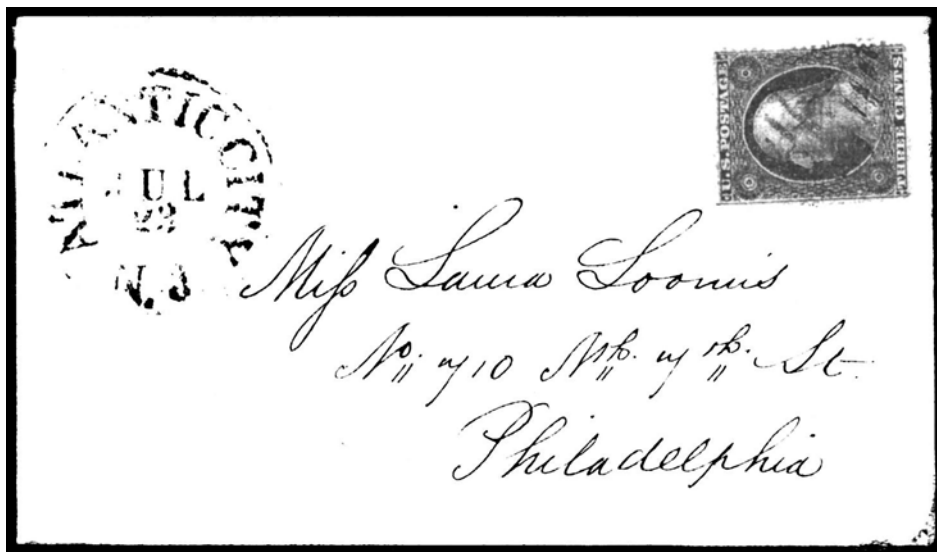 ATLANTIC CITY
JUL
N.J
U.S. POSTAGE
THREE CENTS
Miſs Laura Loomis
No. 710 Nth. 7th. St.
Philadelphia